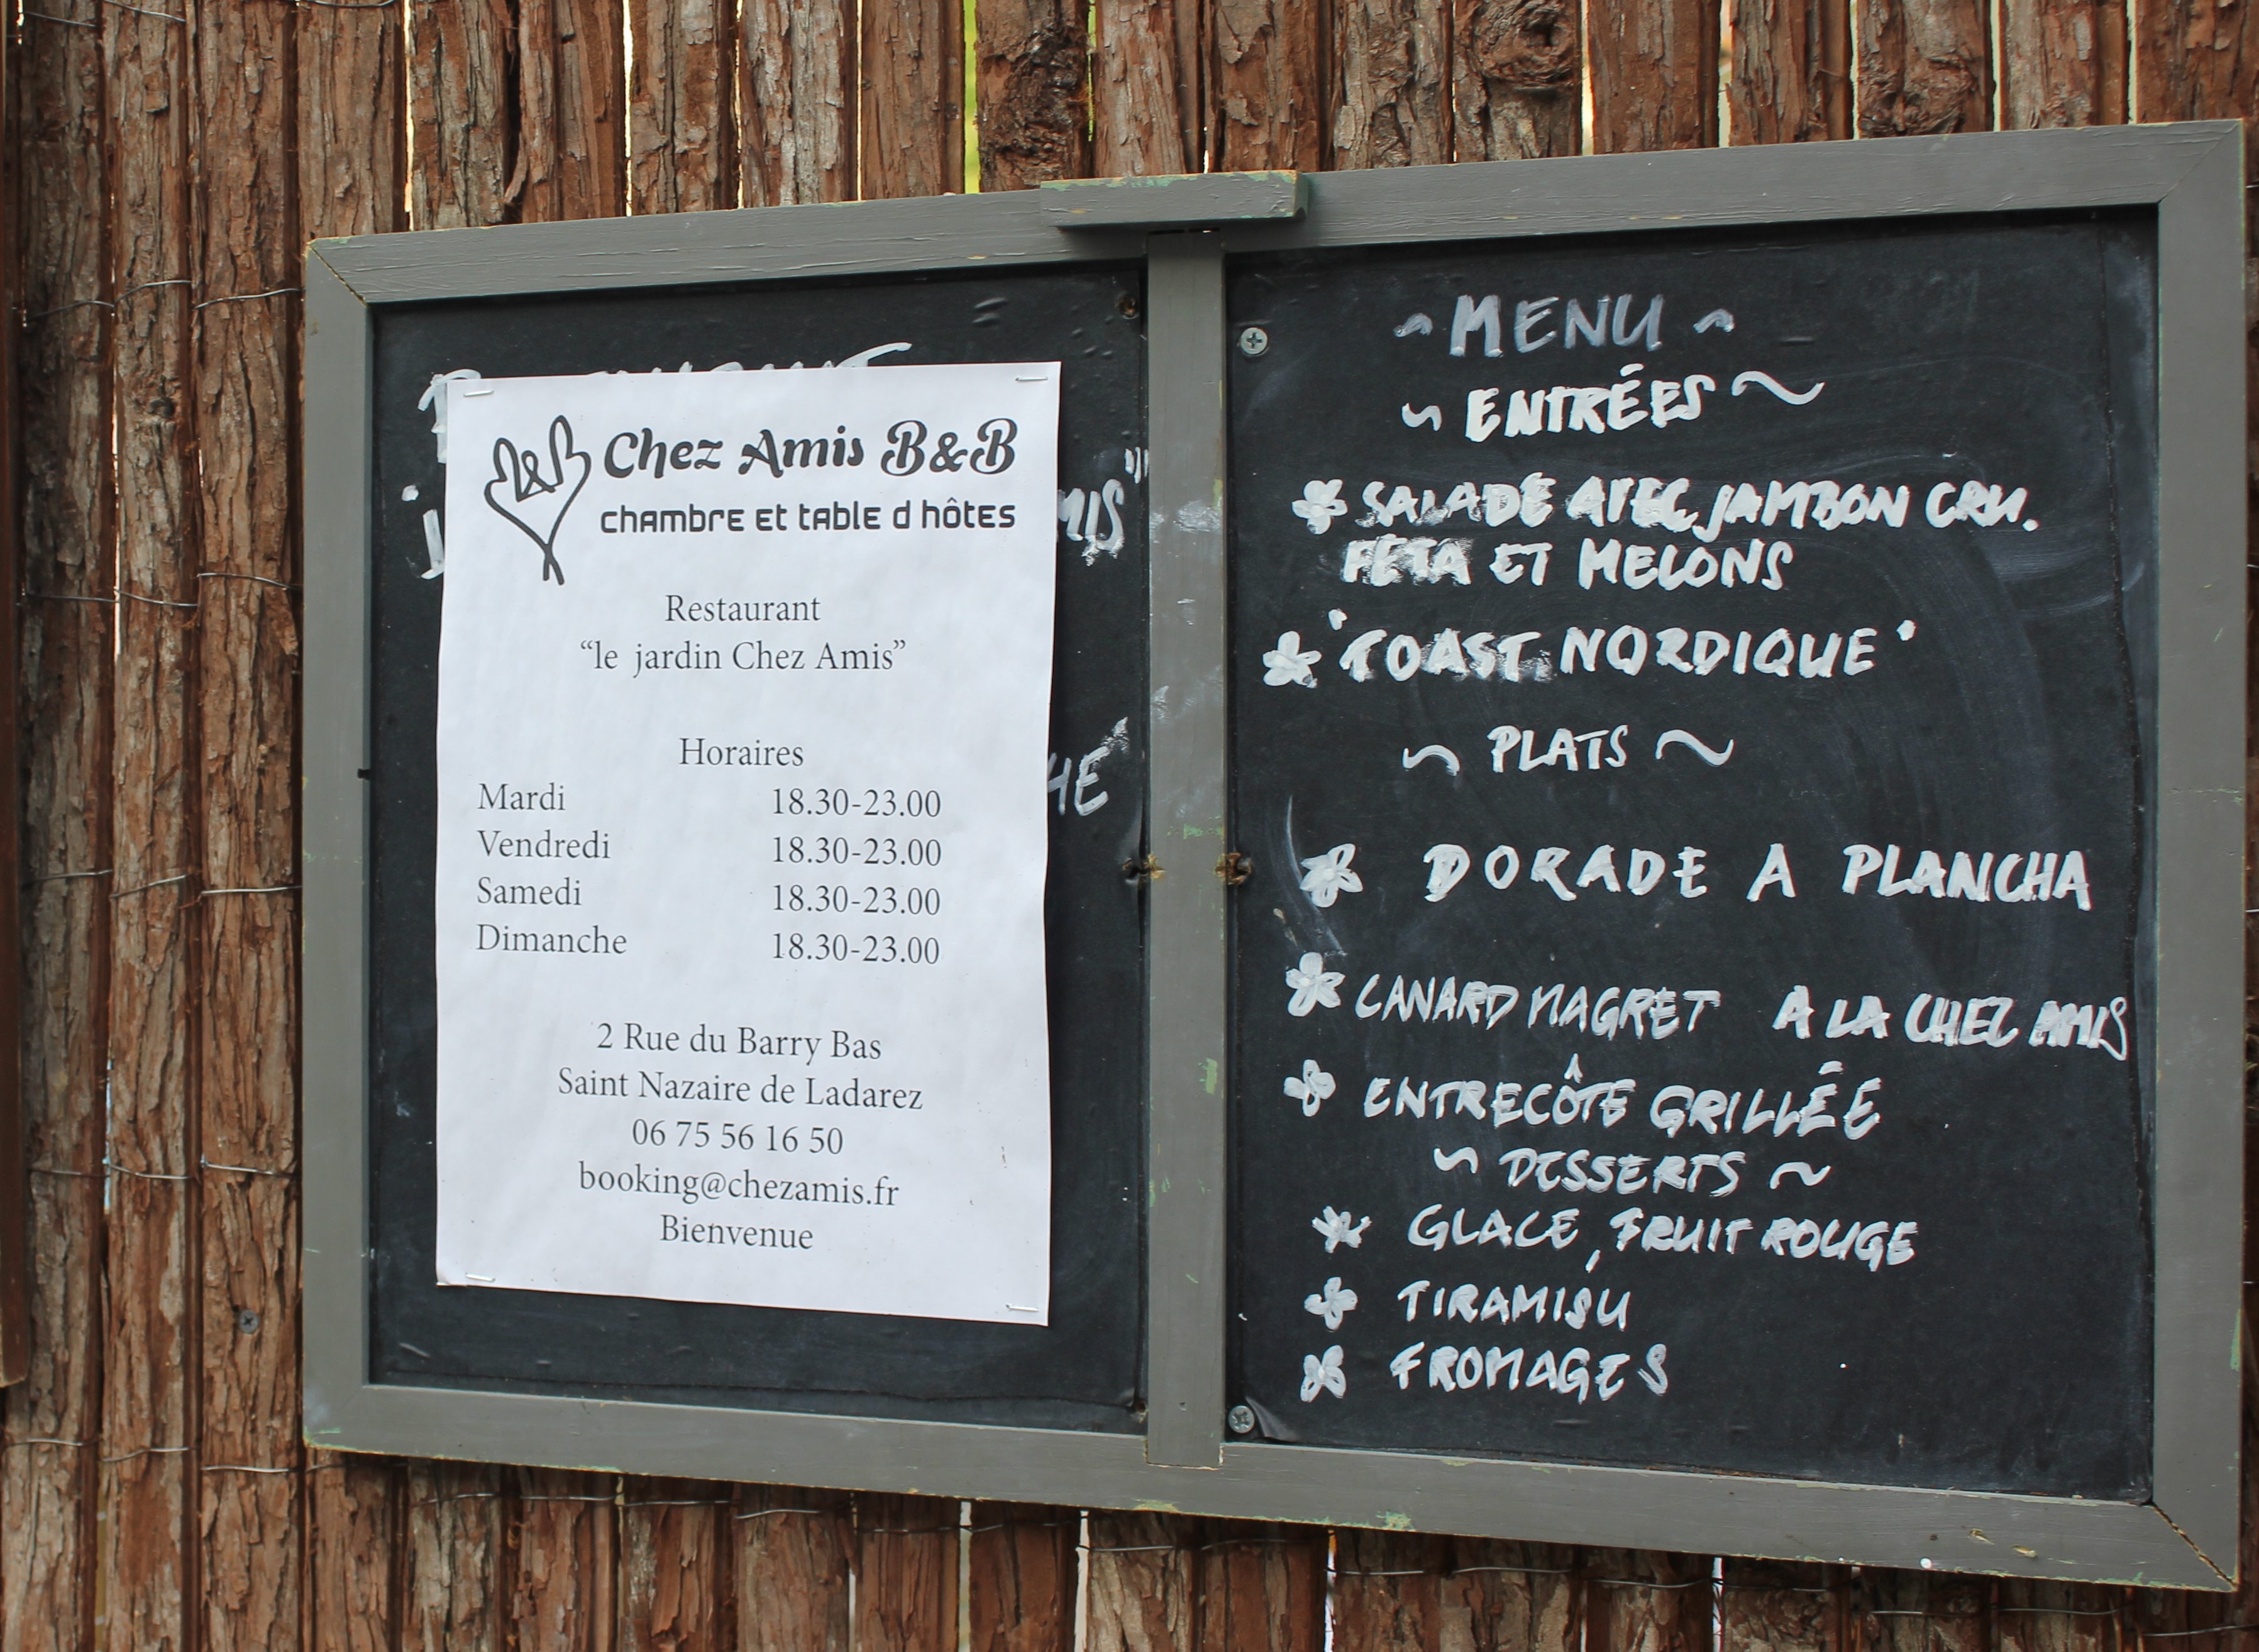 Chez Amis B&B
chambre et table d hôtes
B&B
Restaurant
“le jardin Chez Amis”
Horaires
Mardi 18.30-23.00
Vendredi 18.30-23.00
Samedi 18.30-23.00
Dimanche 18.30-23.00
2 Rue du Barry Bas
Saint Nazaire de Ladarez
06 75 56 16 50
booking@chezamis.fr
Bienvenue
~ MENU ~
~ ENTRÉES ~
SALADE AVEC JAMBON CRU.
FETA ET MELONS
"TOAST NORDIQUE"
~ PLATS ~
DORADE A PLANCHA
CANARD MAGRET A LA CHEZ AMIS
ENTRECÔTE GRILLÉE
~ DESSERTS ~
GLACE, FRUIT ROUGE
TIRAMISU
FROMAGES